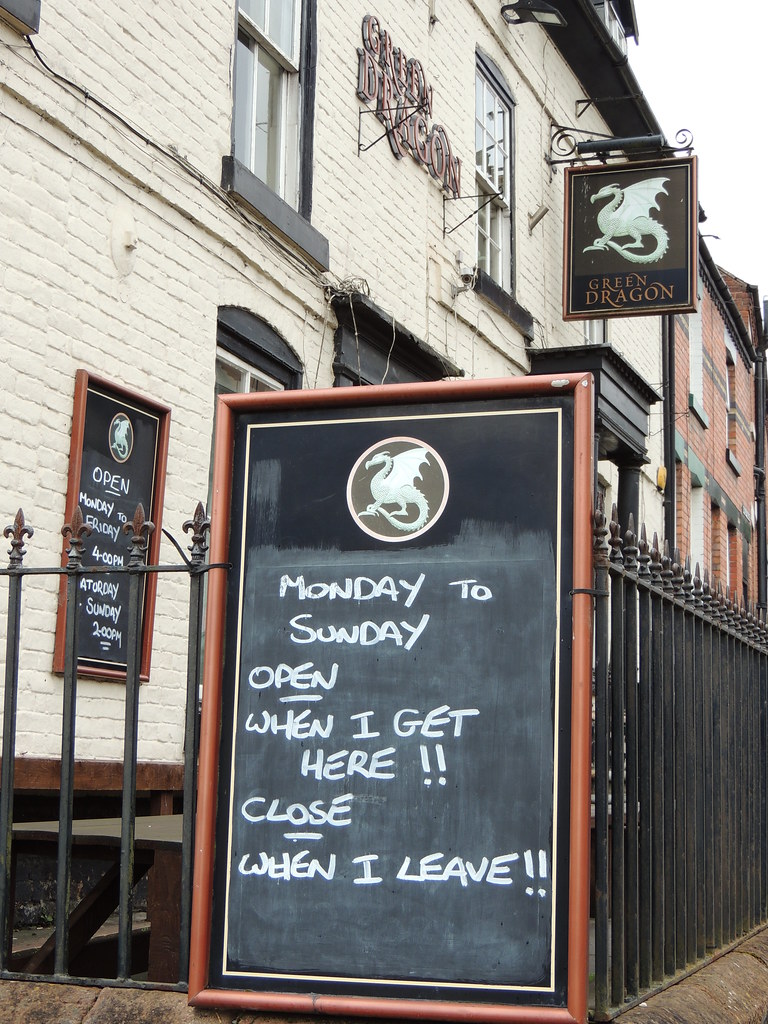 GREEN
DRAGON
GREEN
DRAGON
OPEN
MONDAY TO
FRIDAY
4-00PM
ATURDAY
SUNDAY
2-00PM
MONDAY TO
SUNDAY
OPEN
WHEN I GET
HERE !!
CLOSE
WHEN I LEAVE!!